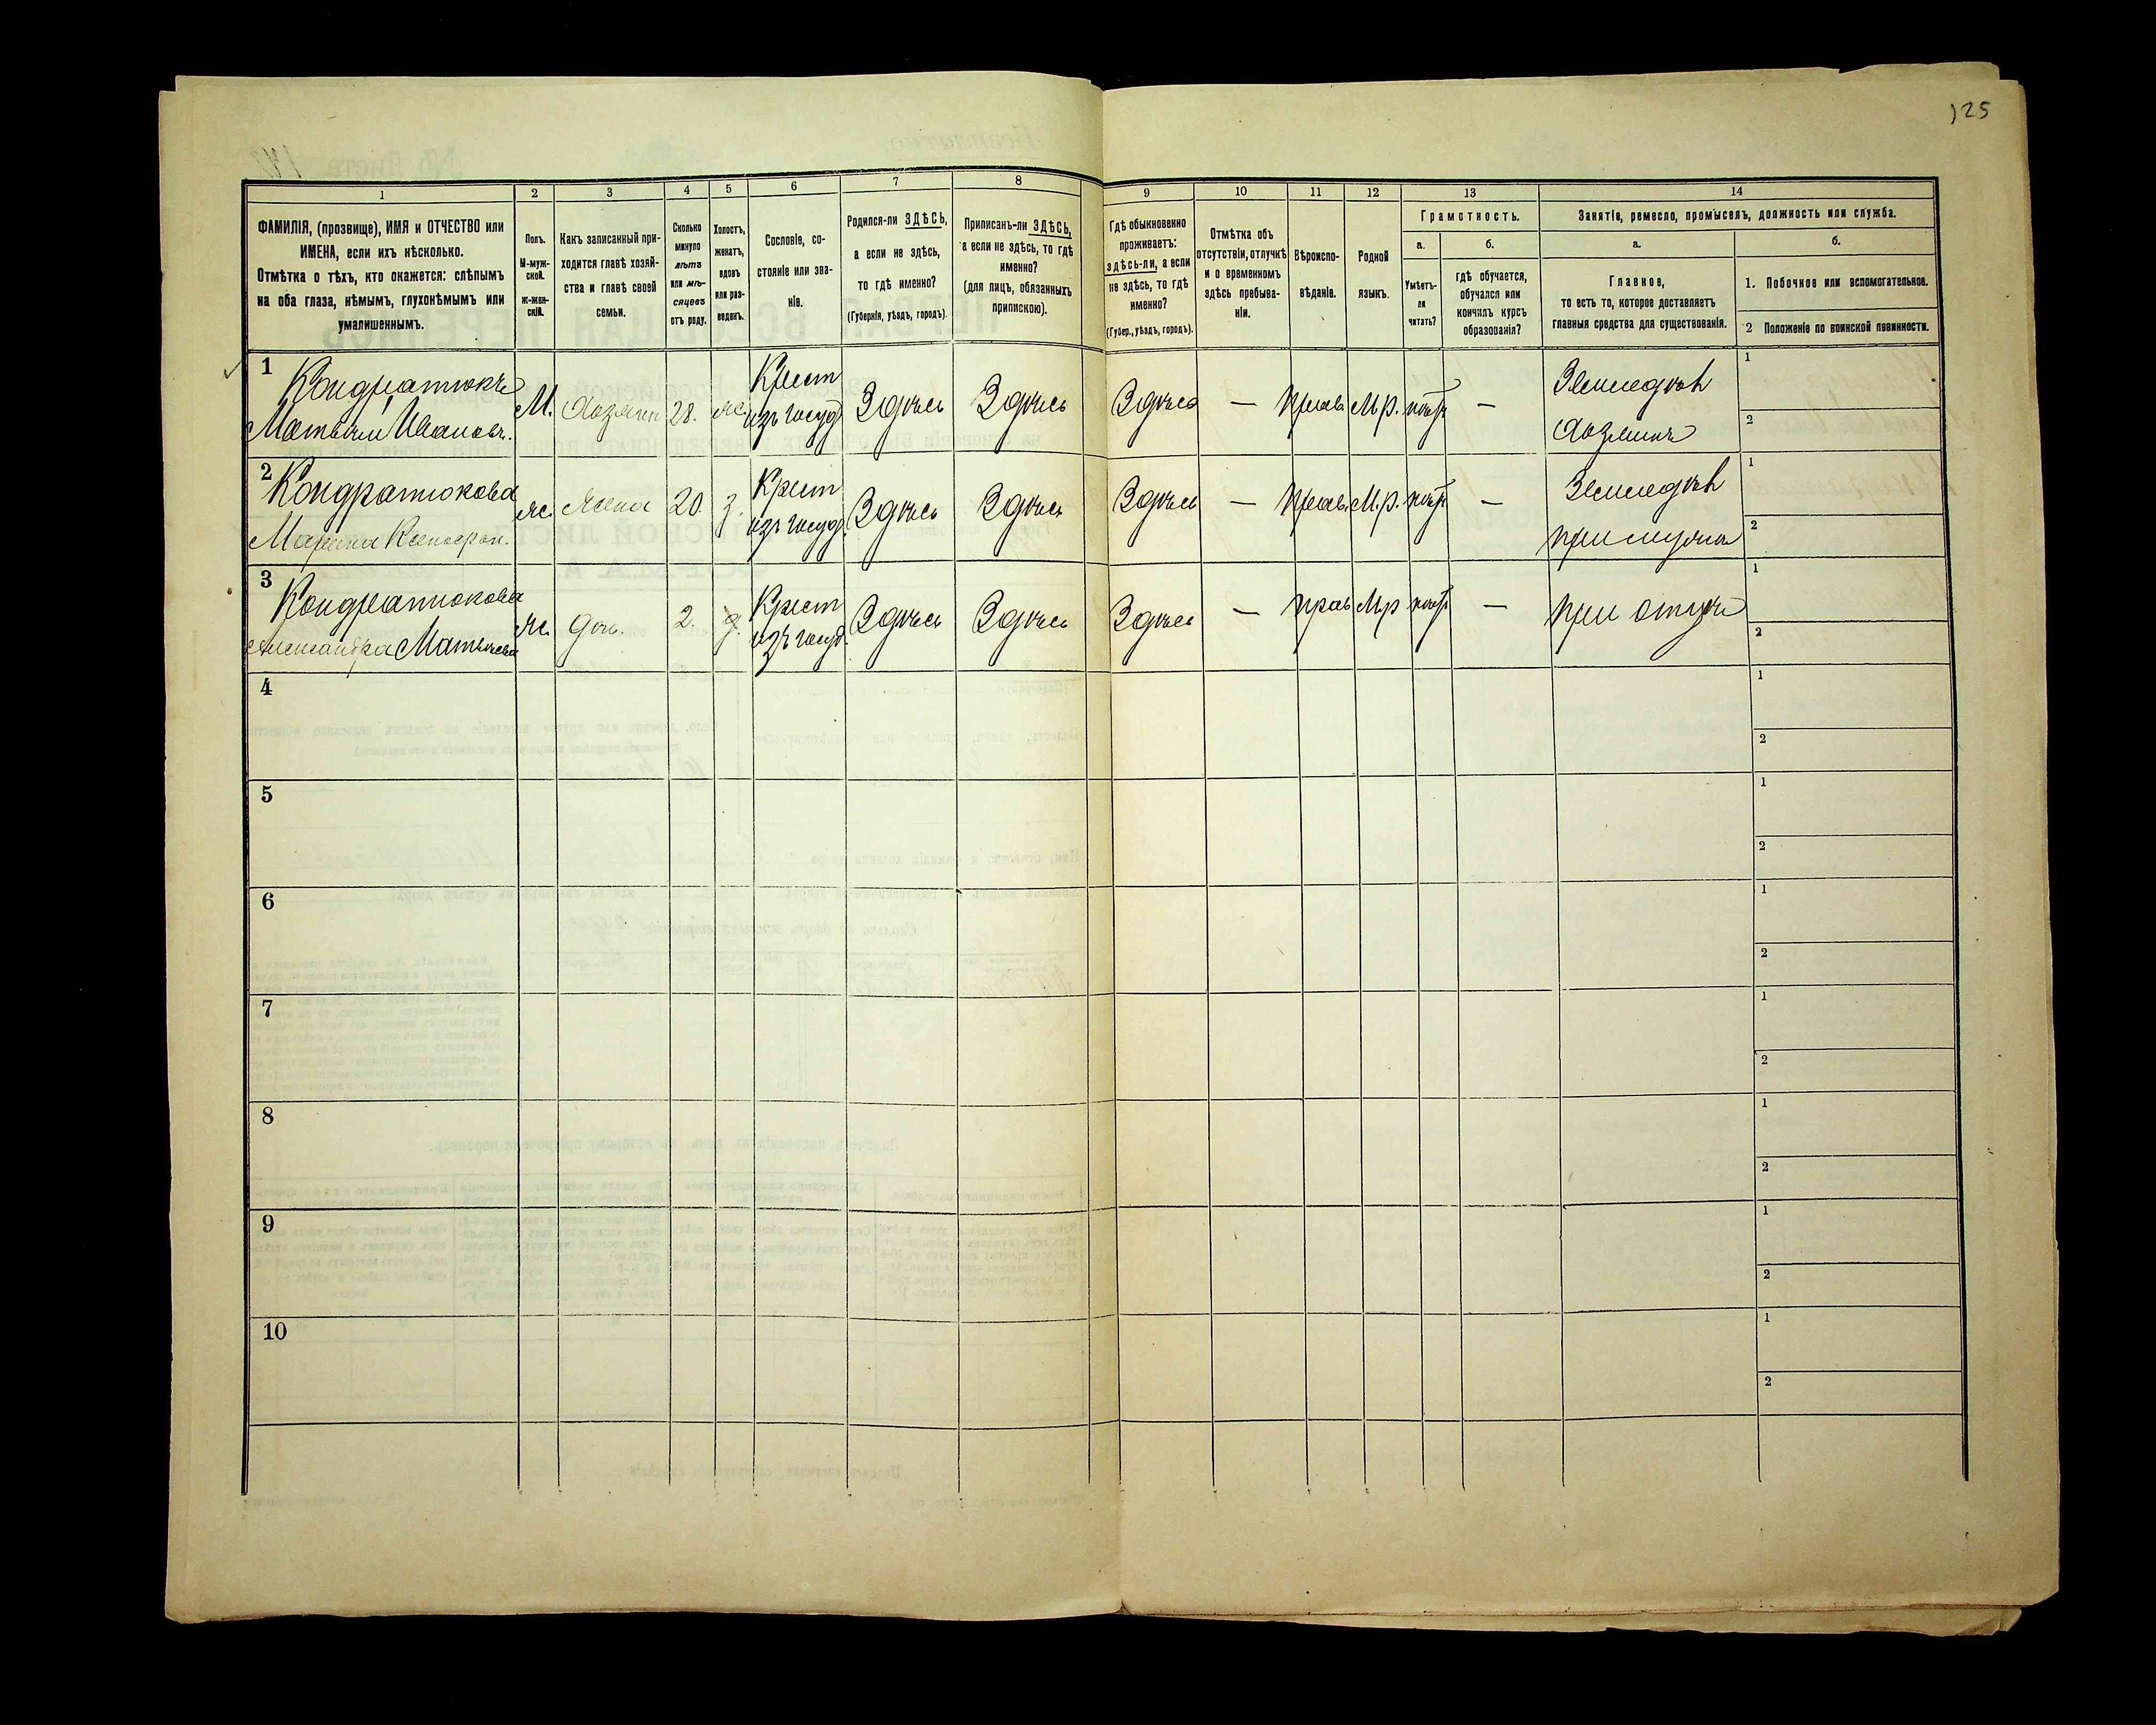 125
1 2 3 4 5 6 7 8 9 10 11 12 13 14
ФАМИЛІЯ, (прозвище), ИМЯ и ОТЧЕСТВО или
ИМЕНА, если ихъ нѣсколько.
Отмѣтка о тѣхъ, кто окажется: слѣпымъ
на оба глаза, нѣмымъ, глухонѣмымъ или
умалишеннымъ.
Полъ.
М-муж-
ской.
ж-жен-
скій.
Какъ записанный при-
ходится главѣ хозяй-
ства и главѣ своей
семьи.
Сколько
минуло
лѣтъ
или мѣ-
сяцевъ
отъ роду.
Холостъ,
женатъ,
вдовъ
или раз-
веденъ.
Сословіе, со-
стояніе или зва-
ніе.
Родился-ли ЗДѢСЬ,
а если не здѣсь,
то гдѣ именно?
(Губернія, уѣздъ, городъ).
Приписанъ-ли ЗДѢСЬ,
а если не здѣсь, то гдѣ
именно?
(для лицъ, обязанныхъ
припискою).
Гдѣ обыкновенно
проживаетъ:
здѣсь-ли, а если
не здѣсь, то гдѣ
именно?
(Губер., уѣздъ, городъ).
Отмѣтка объ
отсутствіи, отлучкѣ
и о временномъ
здѣсь пребыва-
ніи.
Вѣроиспо-
вѣданіе.
Родной
языкъ.
Грамотность.
а.
Умѣетъ-
ли
читать?
б.
гдѣ обучается,
обучался или
кончилъ курсъ
образованія?
Занятіе, ремесло, промыселъ, должность или служба.
а.
Главное,
то есть то, которое доставляетъ
главныя средства для существованія.
б.
1. Побочное или вспомогательное.
2 Положеніе по воинской повинности.
1
Кондратюкъ
Матвѣй Ивановъ.
М. Хозяин 28. ж.
Крест
изъ госуд
Здѣсь Здѣсь Здѣсь — прав. М.р. нѣтъ —
Земледѣл
хозяинъ
1
2
2
Кондратюкова
Марина
ж. жена 20. з.
Крест
изъ госуд.
Здѣсь Здѣсь Здѣсь — прав. М.р. нѣтъ —
Земледѣл
при мужѣ
1
2
3
Кондратюкова
Александра Матвѣева
ж. доч. 2. д.
Крест
изъ госуд.
Здѣсь Здѣсь Здѣсь — прав М.р нѣтъ —
при отцѣ
1
2
4
1
2
5
1
2
6
1
2
7
1
2
8
1
2
9
1
2
10
1
2